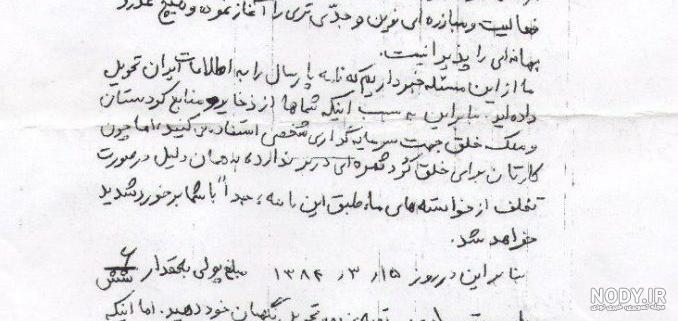 فعالیت و مبارزه‌ای نوین و جدّی تری را آغاز نموده و هیچ عذر و
بهانه‌ای را پذیرا نیست.
ما از این مسئله خبر داریم که نامه پارسال را به اطلاعات ایران تحویل
داده‌اید. بنابراین به سبب اینکه شماها از ذخایر و منابع کردستان
و ملک خلق جهت سرمایه گذاری شخصی استفاده می کنید، اما چون
کارتان برای خلق کُرد ثمره‌ای در بر ندارد، به همان دلیل در صورت
تخلف از خواسته های ما، طبق این نامه، جداً با شما برخورد شدید
خواهد شد.
بنابراین در روز ۱۵، ۳، ۱۳۸۴ مبلغ پولی بمقدار ۶ شش
تحویل نگهبان خود دهید. اما اینکه
NODY.IR